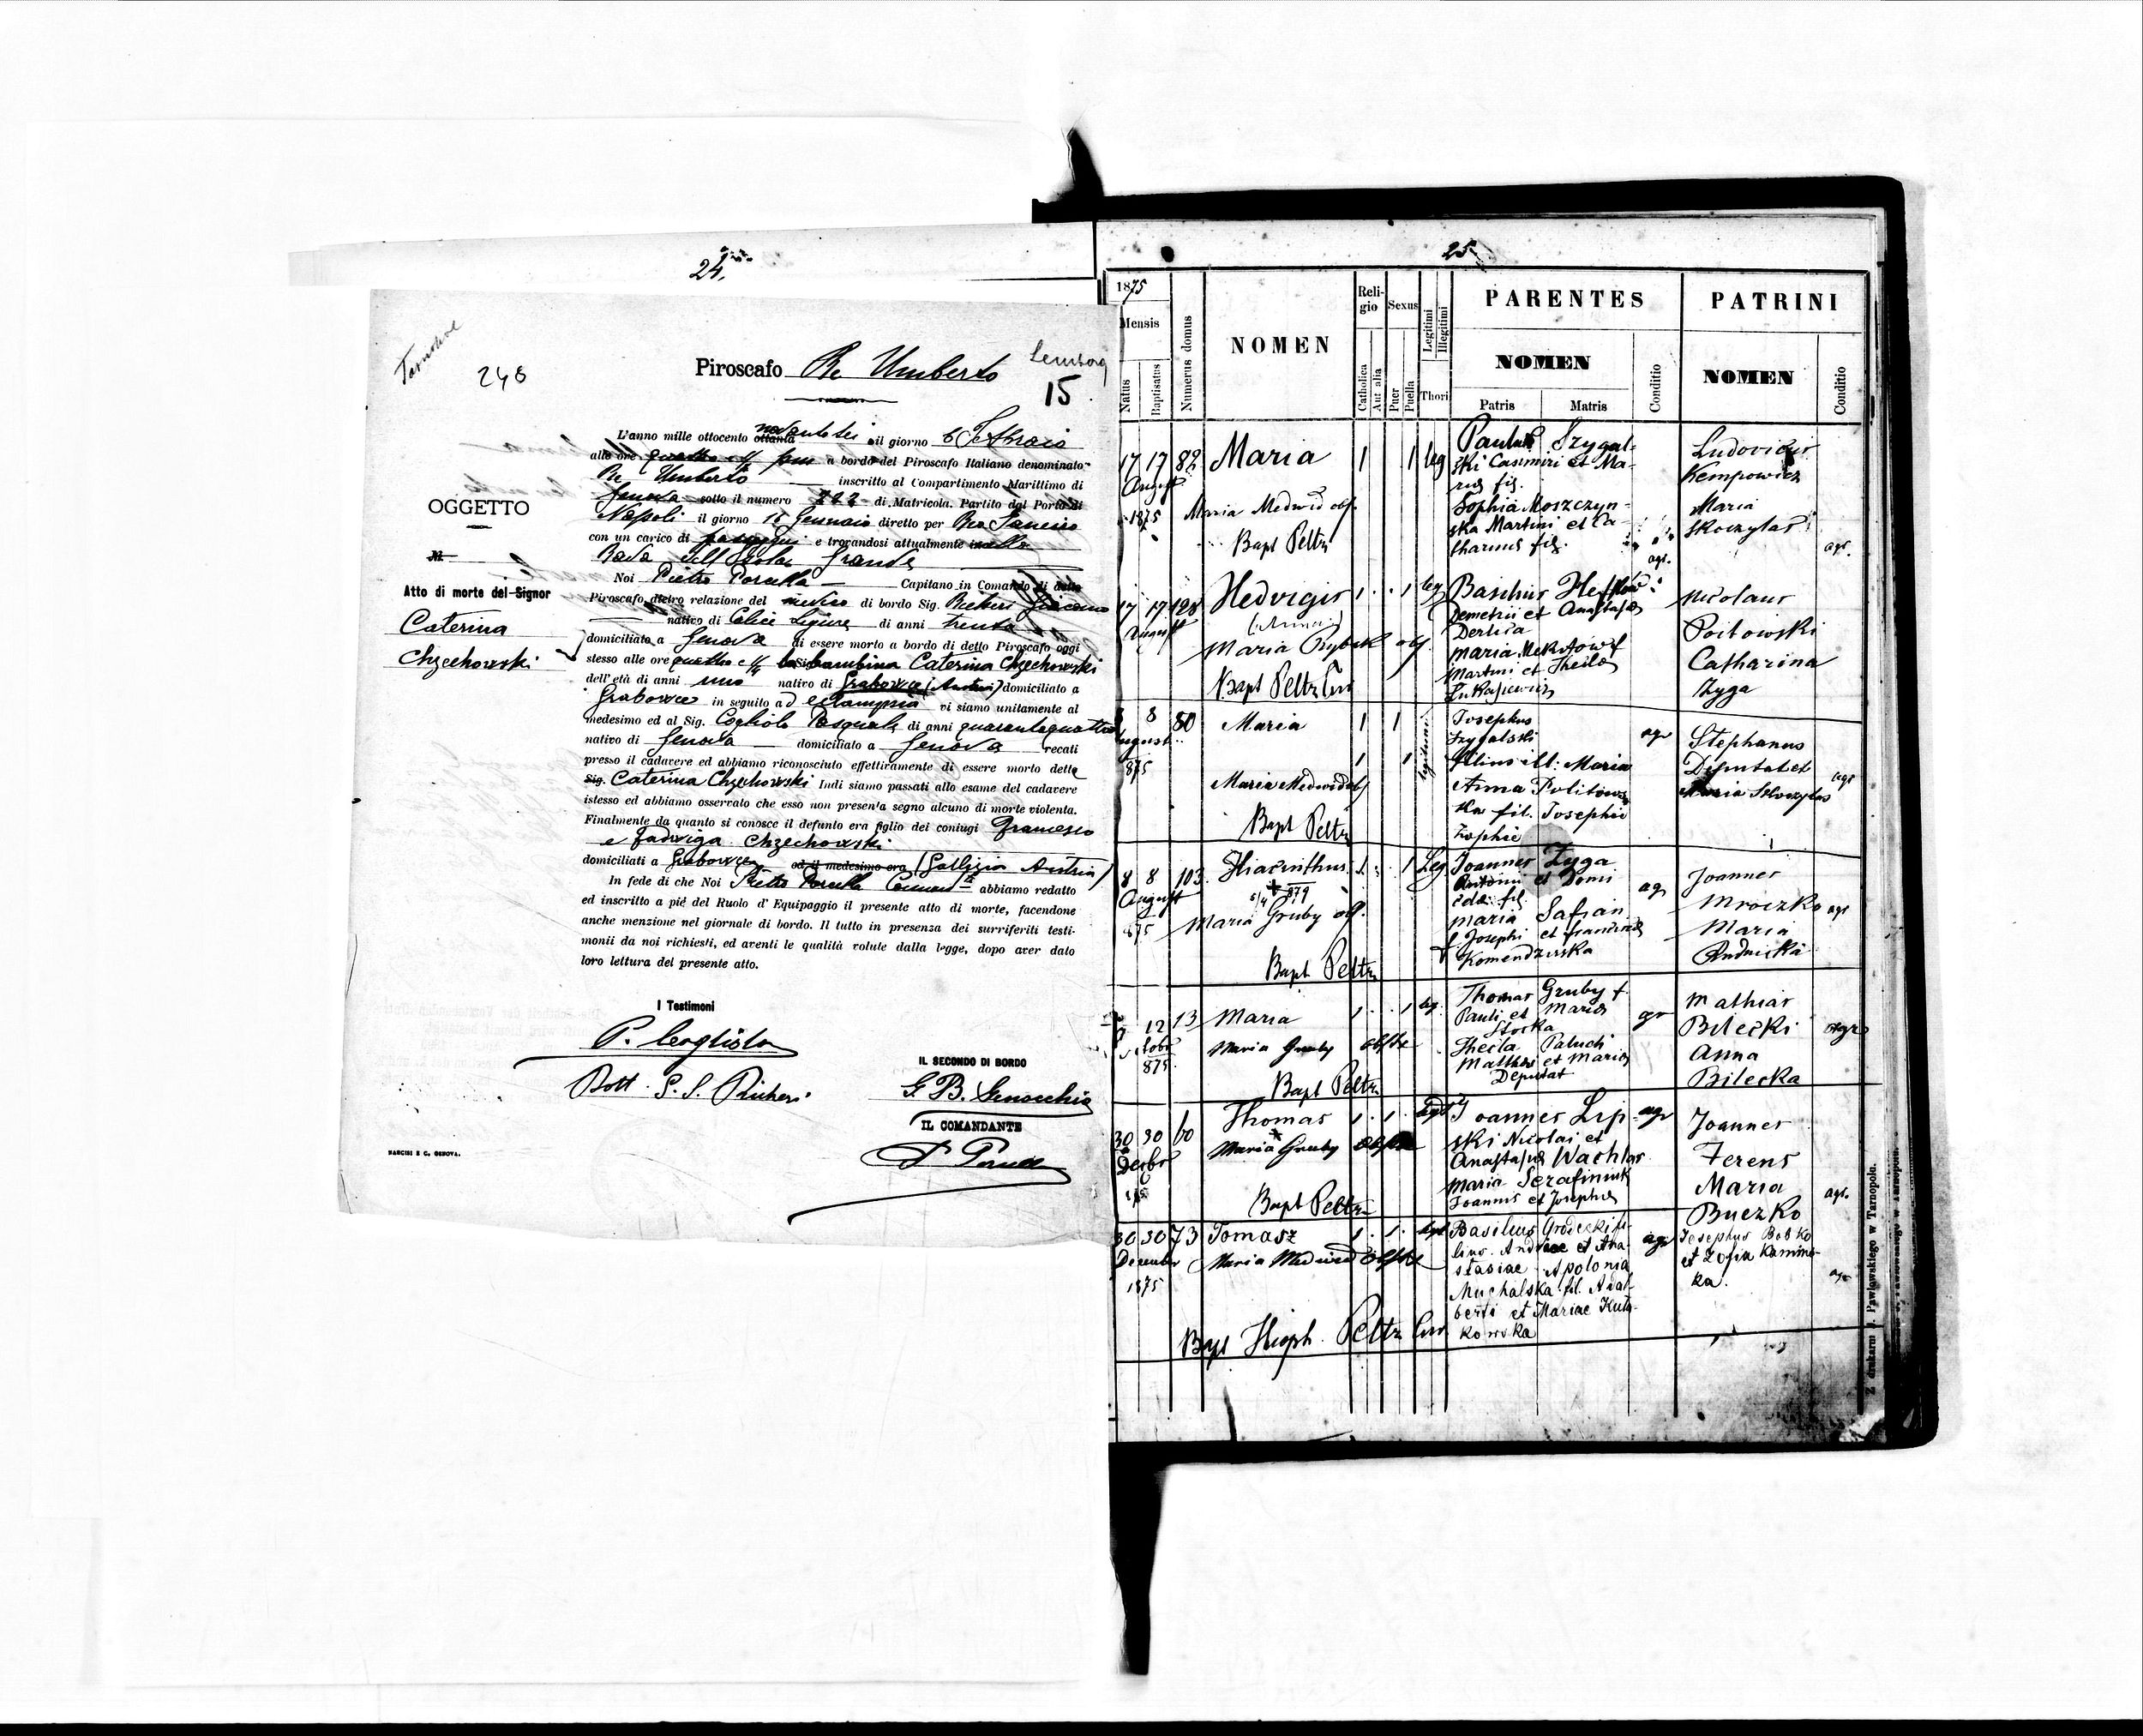 24.
Tarnopol
248
Piroscafo Re Umberto
Lemberg
15
L'anno mille ottocento ottanta novantasei il giorno 6 Febbraio
alle ore quattro e 1/4 pom a bordo del Piroscafo Italiano denominato
Re Umberto inscritto al Compartimento Marittimo di
Genova sotto il numero 222 di Matricola. Partito dal Porto di
Napoli il giorno 15 Gennaio diretto per Rio Janeiro
con un carico di passeggeri e trovandosi attualmente nella
Rada dell'Isola Grande
Noi Pietro Porcella Capitano in Comando di detto
Piroscafo dietro relazione del medico di bordo Sig. Richeri Giacomo
nativo di Calice Ligure di anni trenta
domiciliato a Genova di essere morto a bordo di detto Piroscafo oggi
stesso alle ore quattro e 1/4 la bambina Caterina Chzechowski
dell'età di anni uno nativo di Grabowce (Austria) domiciliato a
Grabowce in seguito ad eclampsia vi siamo unitamente al
medesimo ed al Sig. Cogliolo Pasquale di anni quarantaquattro
nativo di Genova domiciliato a Genova recati
presso il cadavere ed abbiamo riconosciuto effettivamente di essere morto detta
Sig. Caterina Chzechowski Indi siamo passati allo esame del cadavere
istesso ed abbiamo osservato che esso non presenta segno alcuno di morte violenta.
Finalmente da quanto si conosce il defunto era figlio dei coniugi Francesco
e Jadwiga Chzechowski
domiciliati a Grabowce ed il medesimo era (Gallizia Austria)
In fede di che Noi Pietro Porcella Comandte abbiamo redatto
ed inscritto a piè del Ruolo d'Equipaggio il presente atto di morte, facendone
anche menzione nel giornale di bordo. Il tutto in presenza dei surriferiti testi-
monii da noi richiesti, ed aventi le qualità volute dalla legge, dopo aver dato
loro lettura del presente atto.
OGGETTO
M
Atto di morte del Signor
Caterina
Chzechowski
I Testimoni
P. Cogliolo
Dott. G. S. Richeri
IL SECONDO DI BORDO
G. B. Genocchio
IL COMANDANTE
P. Porcella
NARCISI E C. GENOVA.
25
1875
Mensis
Natus
Baptisatus
Numerus domus
NOMEN
Religio
Catholica
Aut alia
Sexus
Puer
Puella
Legitimi
Illegitimi
Thori
PARENTES
NOMEN
Patris
Matris
Conditio
PATRINI
NOMEN
Conditio
17 17 82 Maria 1 1 leg
August
1875
Maria Medwid obs.
Bapt Peltz
Paulus Szygal-
ski Casimiri et Ma-
ria fil.
Sophia Moszczyn-
ska Martini et Ca-
tharina fil.
agr.
Ludovicus
Kempowicz
Maria
Skoczylas
agr.
17 17 128 Hedvigis 1 1 leg
August
(Anna)
Maria Rybak obs.
Bapt Peltz
Basilius
Demetrii et Anastasia
Derlica
Maria
Martini et Thecla
Lukasiewicz
Nicolaus
Poitowski
Catharina
Zyga
8 80 Maria 1 1
August
875
Maria Medwid
Bapt Peltz
legitimi
Josephus
Szygalski
filius ill: Maria
Anna Politows
ka fil. Josephi
Zophie
agr
Stephanus
Deputat et
Maria Skoczylas
agr
8 8 103 Hiacinthus 1 1 Leg
August
875
+ 5/4 879
Maria Gruby obs.
Bapt Peltz
Joannes Zyga
Antoni et Domi
cela fil.
Maria Safian
f. Josephi et Francisca
Komendzinska
agr
Joannes
Mroczko
Maria
Rudnicka
agr
12 13 Maria 1 1 leg.
875
Maria Gruby obstx
Bapt Peltz
Thomas Gruby f.
Pauli et Maria
Slocka
Thecla Paluch
Matthei et Maria
Deputat
Mathias
Bilecki
Anna
Bilecka
agr
30 30 60 Thomas 1 1
Decbr
Maria Gruby obstx
Bapt Peltz
Joannes Lip-
ski Nicolai et
Anastasia Wachlar
Maria Serafiniuk
Joannis et Josepha
agr
Joannes
Ferens
Maria
Buczko
agr.
30 30 73 Tomasz 1 1 legt
December
1875
Maria Medwid obstx
Bapt Hieph. Peltz
Basileus Grodecki fi-
lius Andreae et Ana-
stasiae Apolonia
Muchalska fil. Adal-
berti et Mariae Kuta
kowska
agr
Josephus Bobko
et Zofia Kamins-
ka.
agr
Z drukarni J. Pawłowskiego w Tarnopolu.